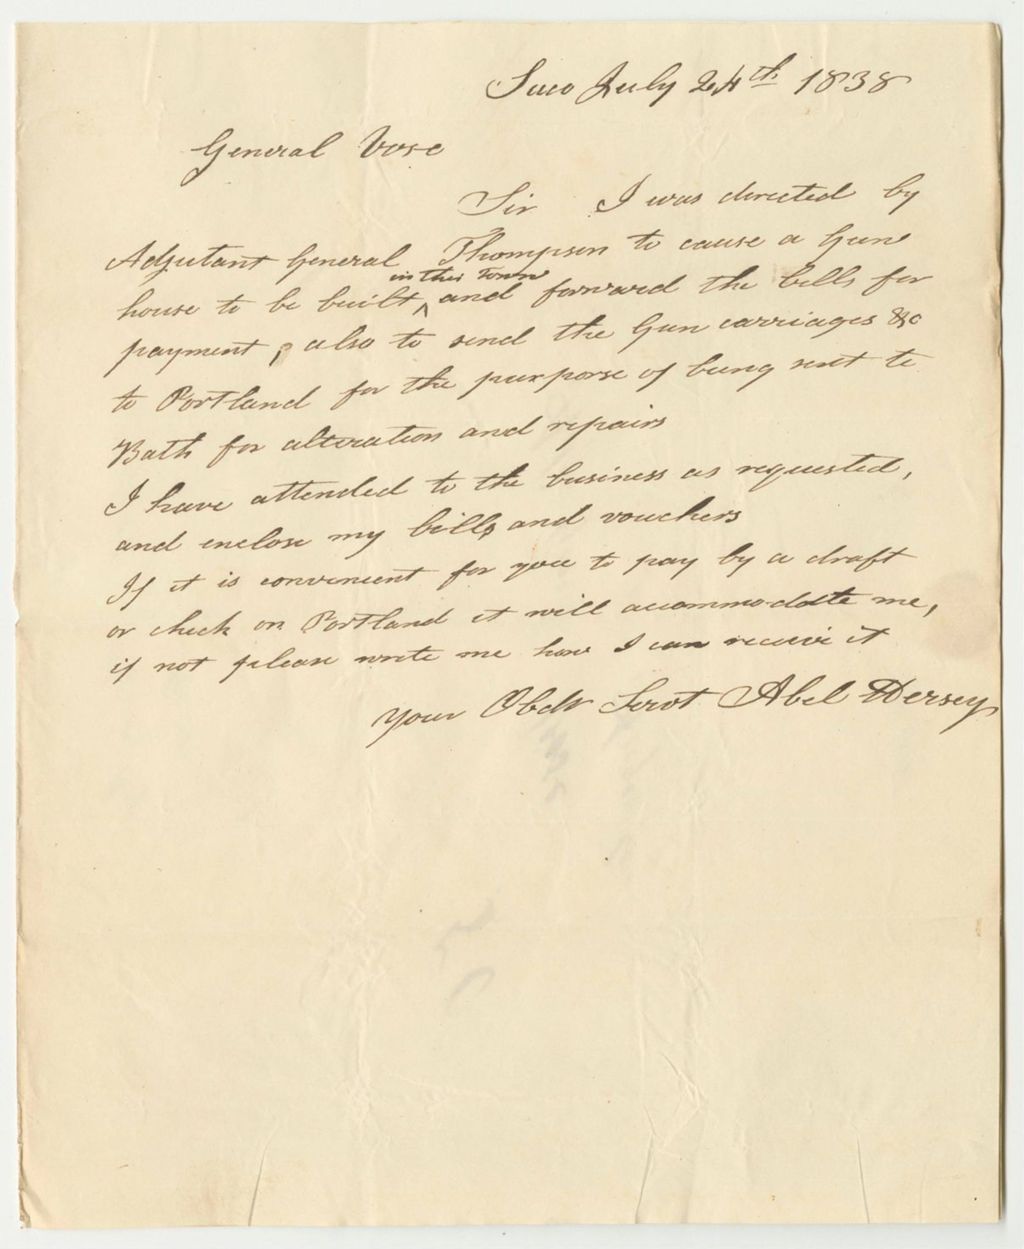 Saco July 24th 1838
General Vose
Sir I was directed by
Adjutant General Thompson to cause a Gun
in this Town
house to be built ^ and forward the bills for
payment, also to send the Gun carriages &c
to Portland for the purporse of being sent to
Bath for alteration and repairs
I have attended to the business as requested,
and enclose my bills and vouchers
If it is convenient for you to pay by a draft
or check on Portland it will accommodate me,
if not please write me how I can receive it
your Obdt Servt Abel Hersey